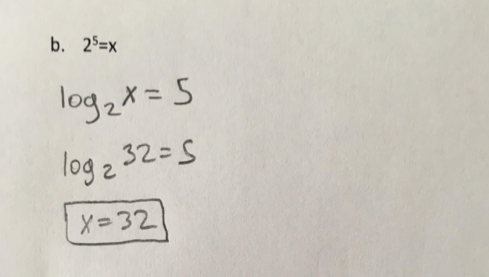 b. 2⁵=x
log₂x = 5
log₂32 = 5
x = 32